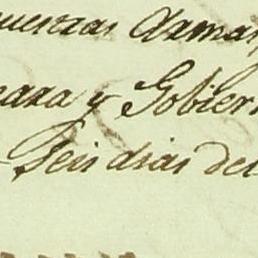 fuerzas Armas
cara y Gobier
Seis dias del